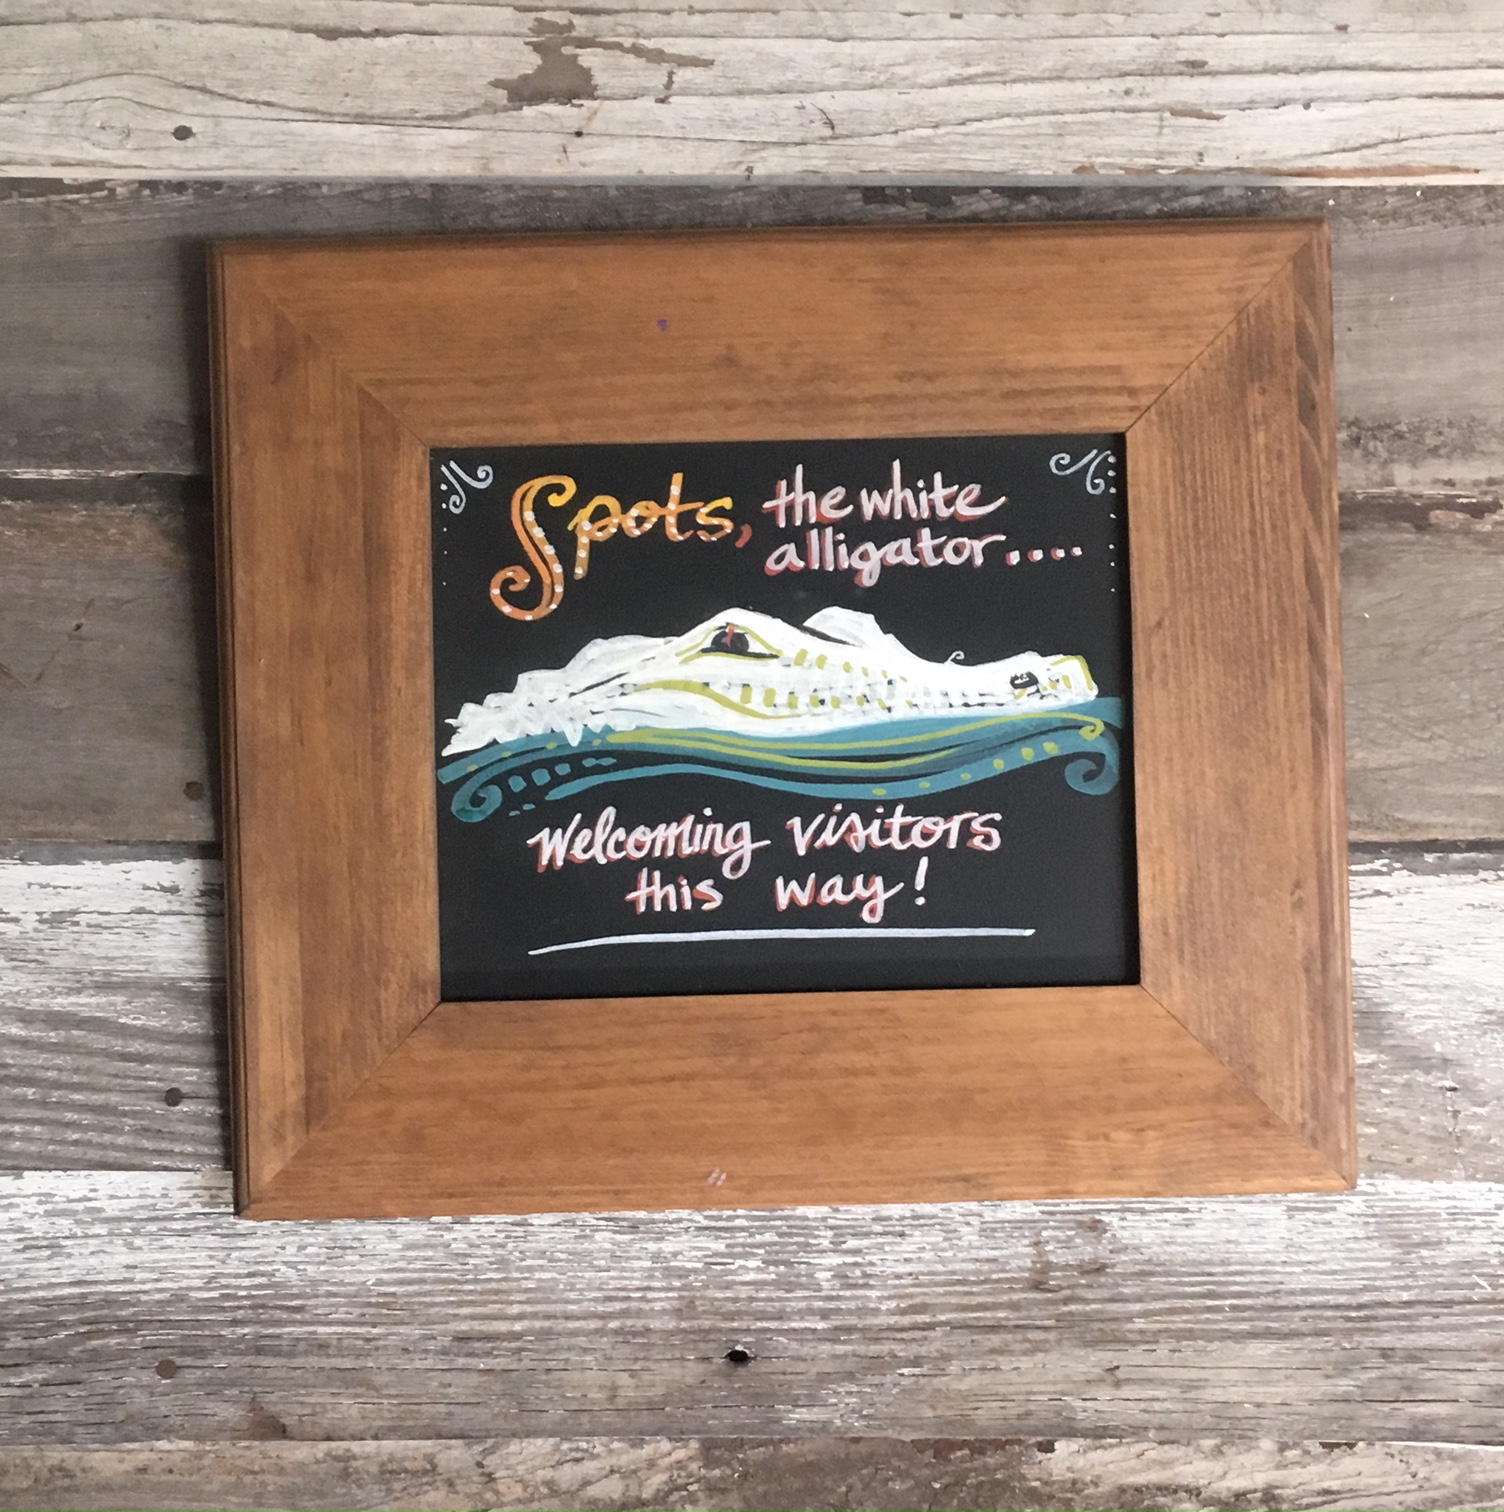 Spots, the white
alligator....
Welcoming visitors
this way!